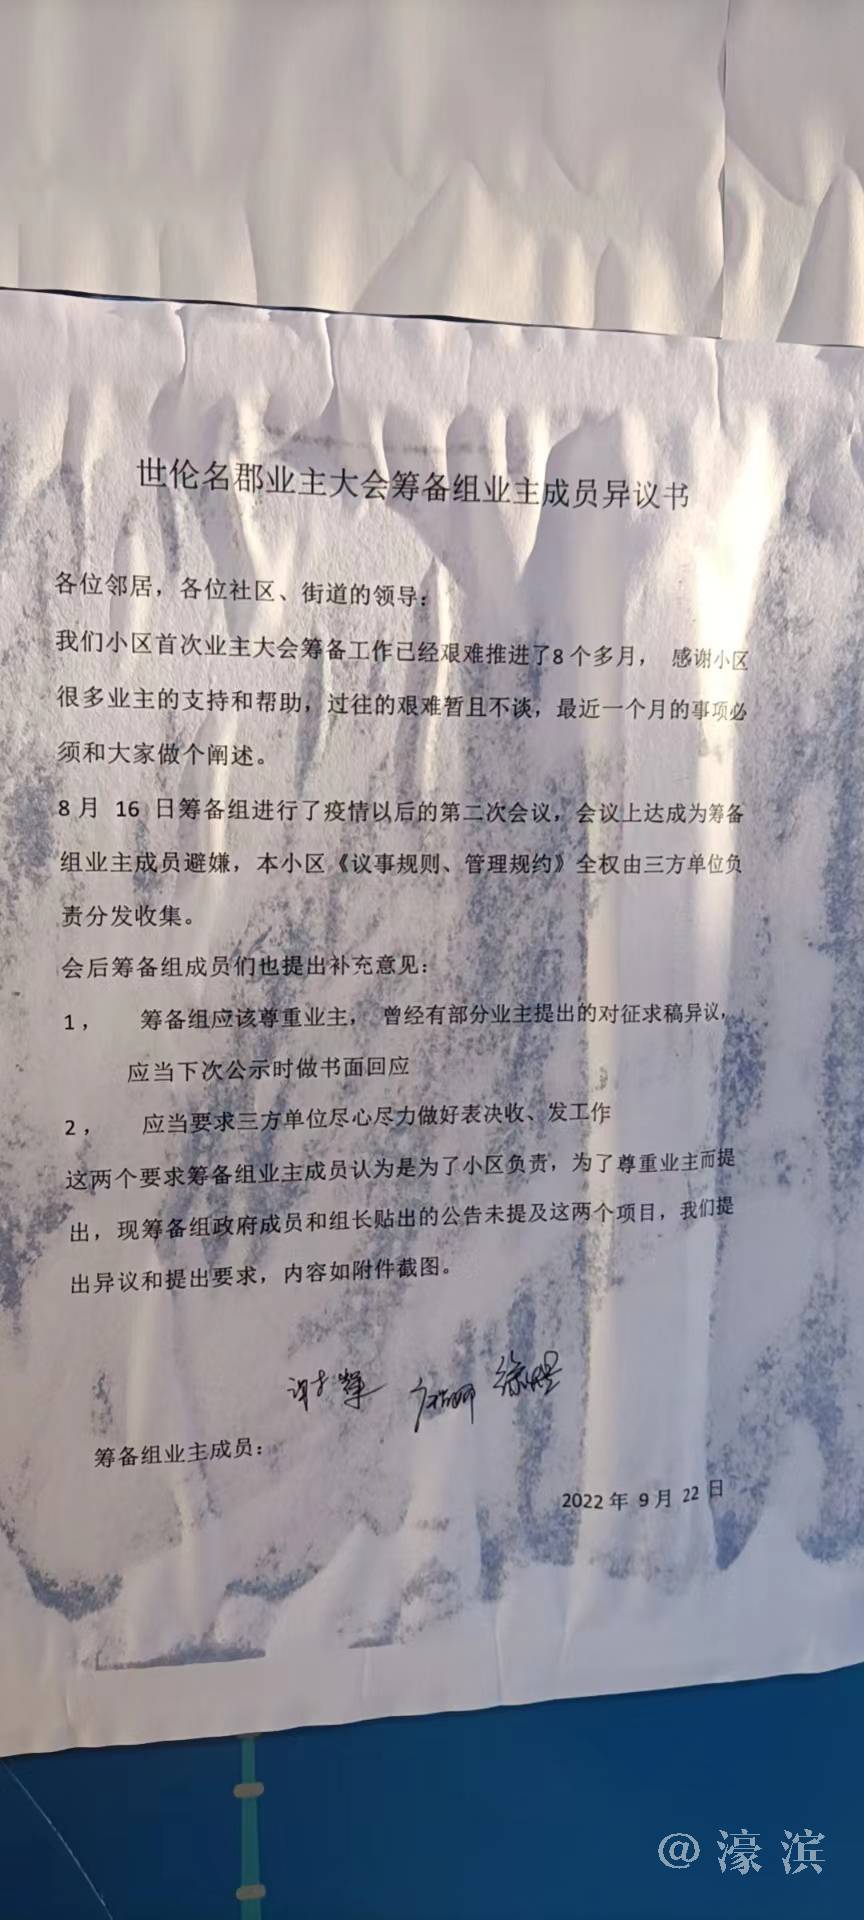 世伦名郡业主大会筹备组业主成员异议书
各位邻居，各位社区、街道的领导：
我们小区首次业主大会筹备工作已经艰难推进了8个多月， 感谢小区
很多业主的支持和帮助，过往的艰难暂且不谈，最近一个月的事项必
须和大家做个阐述。
8月 16 日筹备组进行了疫情以后的第二次会议，会议上达成为筹备
组业主成员避嫌，本小区《议事规则、管理规约》全权由三方单位负
责分发收集。
会后筹备组成员们也提出补充意见：
1， 筹备组应该尊重业主， 曾经有部分业主提出的对征求稿异议，
应当下次公示时做书面回应
2， 应当要求三方单位尽心尽力做好表决收、发工作
这两个要求筹备组业主成员认为是为了小区负责，为了尊重业主而提
出，现筹备组政府成员和组长贴出的公告未提及这两个项目，我们提
出异议和提出要求，内容如附件截图。
筹备组业主成员：
2022 年 9 月 22 日
@濠滨